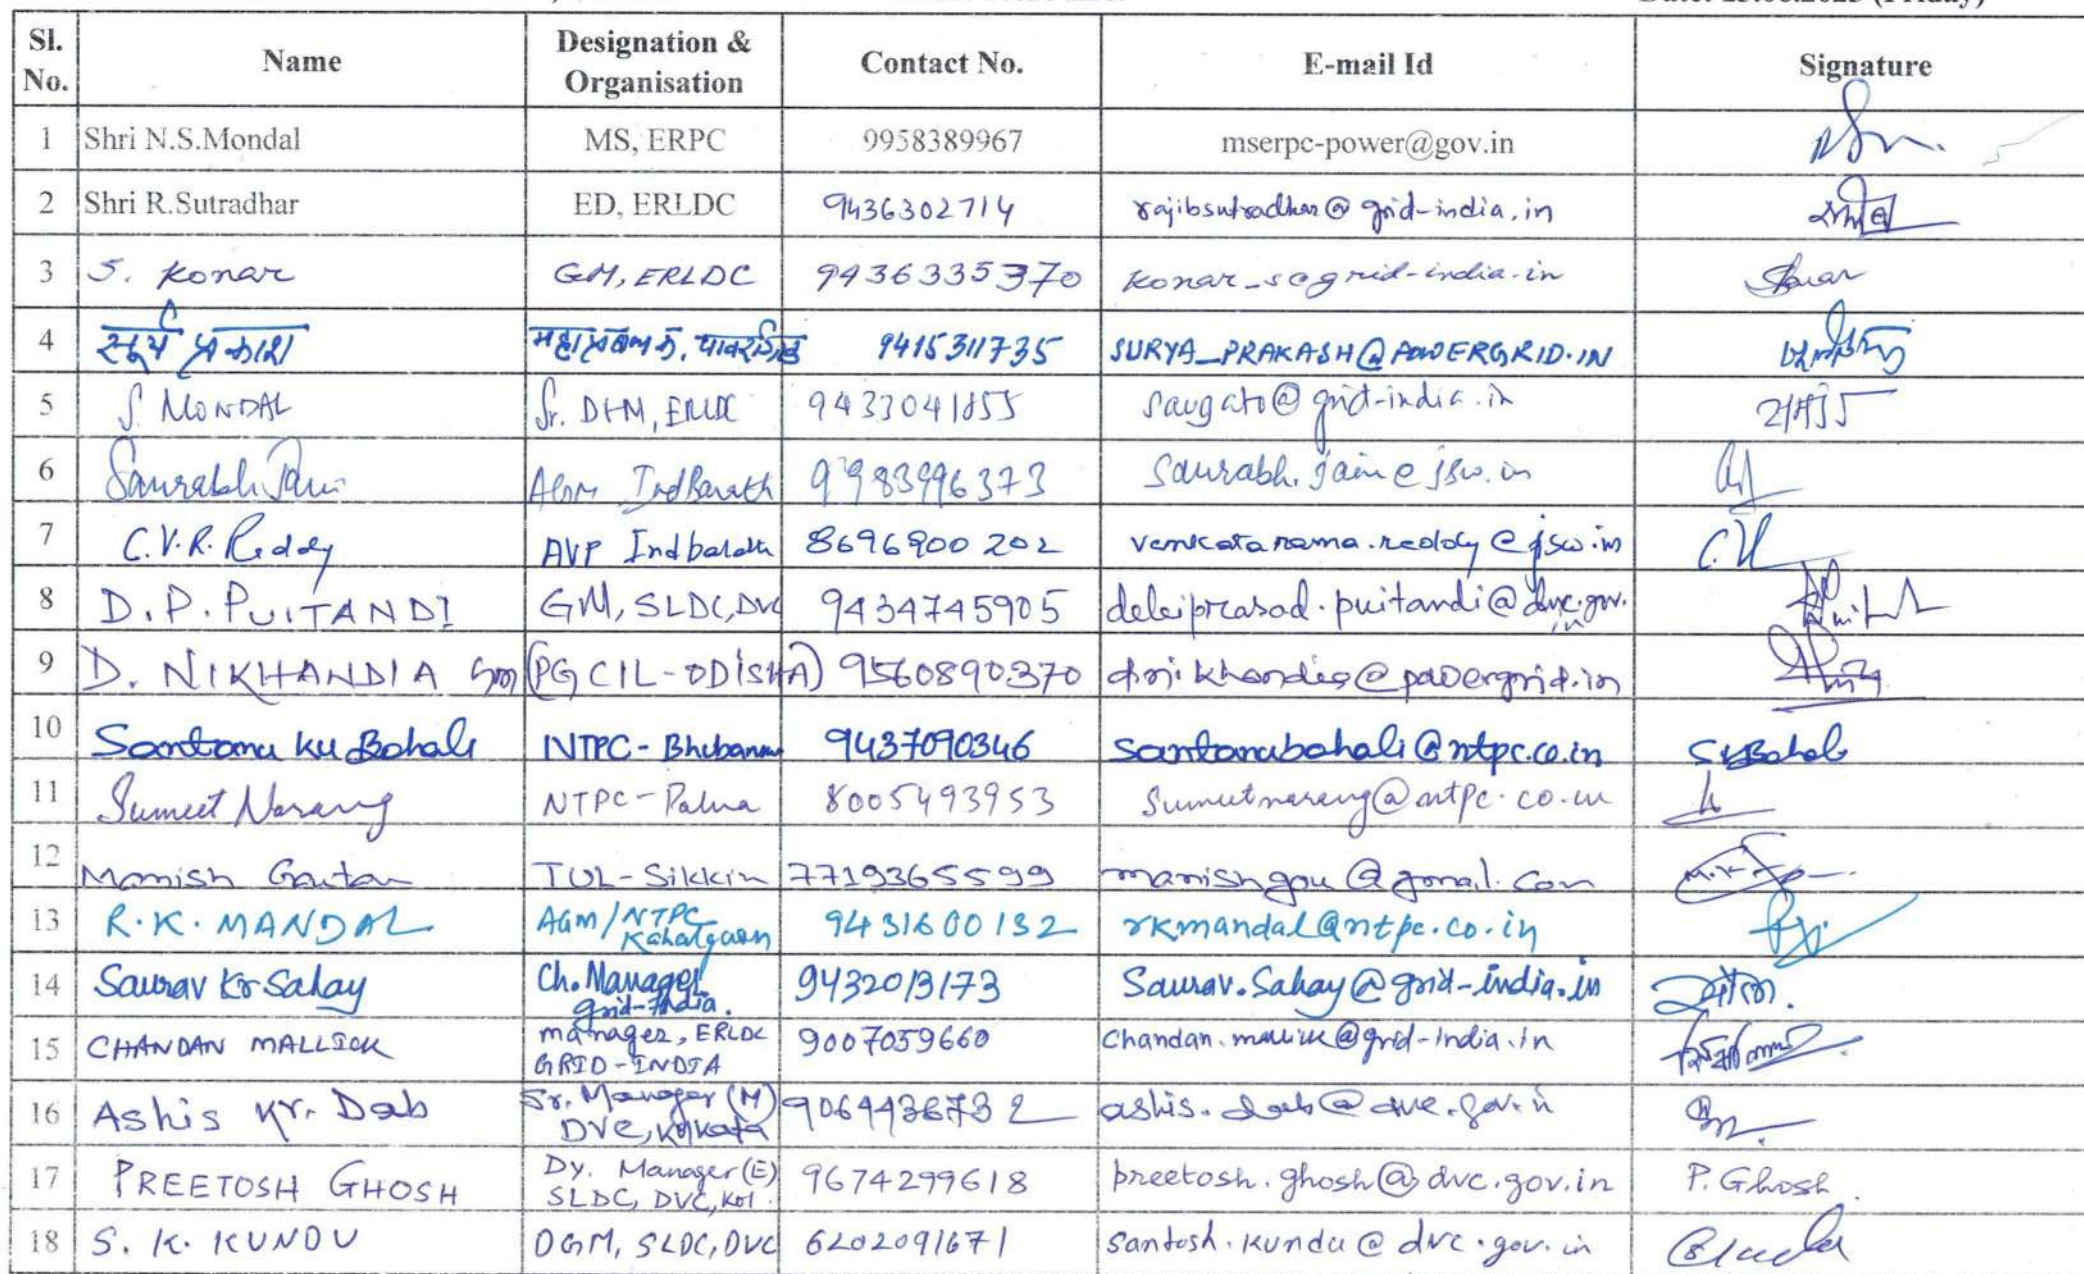 Sl. No. Name Designation & Organisation Contact No. E-mail Id Signature
1 Shri N.S.Mondal MS, ERPC 9958389967 mserpc-power@gov.in
2 Shri R.Sutradhar ED, ERLDC 9436302714 rajibsutradhar@grid-india.in
3 S. Konar GM, ERLDC 9436335370 konar_s@grid-india.in
4 सूर्य प्रकाश महाप्रबंधक, पावरग्रिड 9415311735 SURYA_PRAKASH@POWERGRID.IN
5 S. MONDAL Sr. DGM, ERLDC 9433041855 saugato@grid-india.in
6 Saurabh Jain AGM IndBarath 9983996373 Saurabh.jain@jsw.in
7 C.V.R. Reddy AVP Indbarath 8696900202 venkatarama.reddy@jsw.in
8 D.P. PUITANDI GM, SLDC, DVC 9434745905 debiprasad.puitandi@dvc.gov.in
9 D. NIKHANDIA GM (PGCIL-ODISHA) 9560890370 dnikhandia@powergrid.in
10 Santanu Ku Bohali NTPC- 9437090346 santanubohali@ntpc.co.in
11 Sumeet Narang NTPC- 8005493953 sumeetnarang@ntpc.co.in
12 Manish Gautam TUL-Sikkim 7719365599 manishgau@gmail.com
13 R.K. MANDAL AGM/NTPC Kahalgaon 9431600132 rkmandal@ntpc.co.in
14 Saurav Kr Sahay Ch. Manager grid-India. 9432013173 Saurav.Sahay@grid-india.in
15 CHANDAN MALLICK manager, ERLDC GRID-INDIA 9007059660 Chandan.mallick@grid-india.in
16 Ashis Kr. Dab Sr. Manager (M) DVC, Kolkata ashis.dab@dvc.gov.in
17 PREETOSH GHOSH Dy. Manager (E) SLDC, DVC, Kol. 9674299618 preetosh.ghosh@dvc.gov.in P. Ghosh
18 S. K. KUNDU DGM, SLDC, DVC 6202091671 santosh.kundu@dvc.gov.in